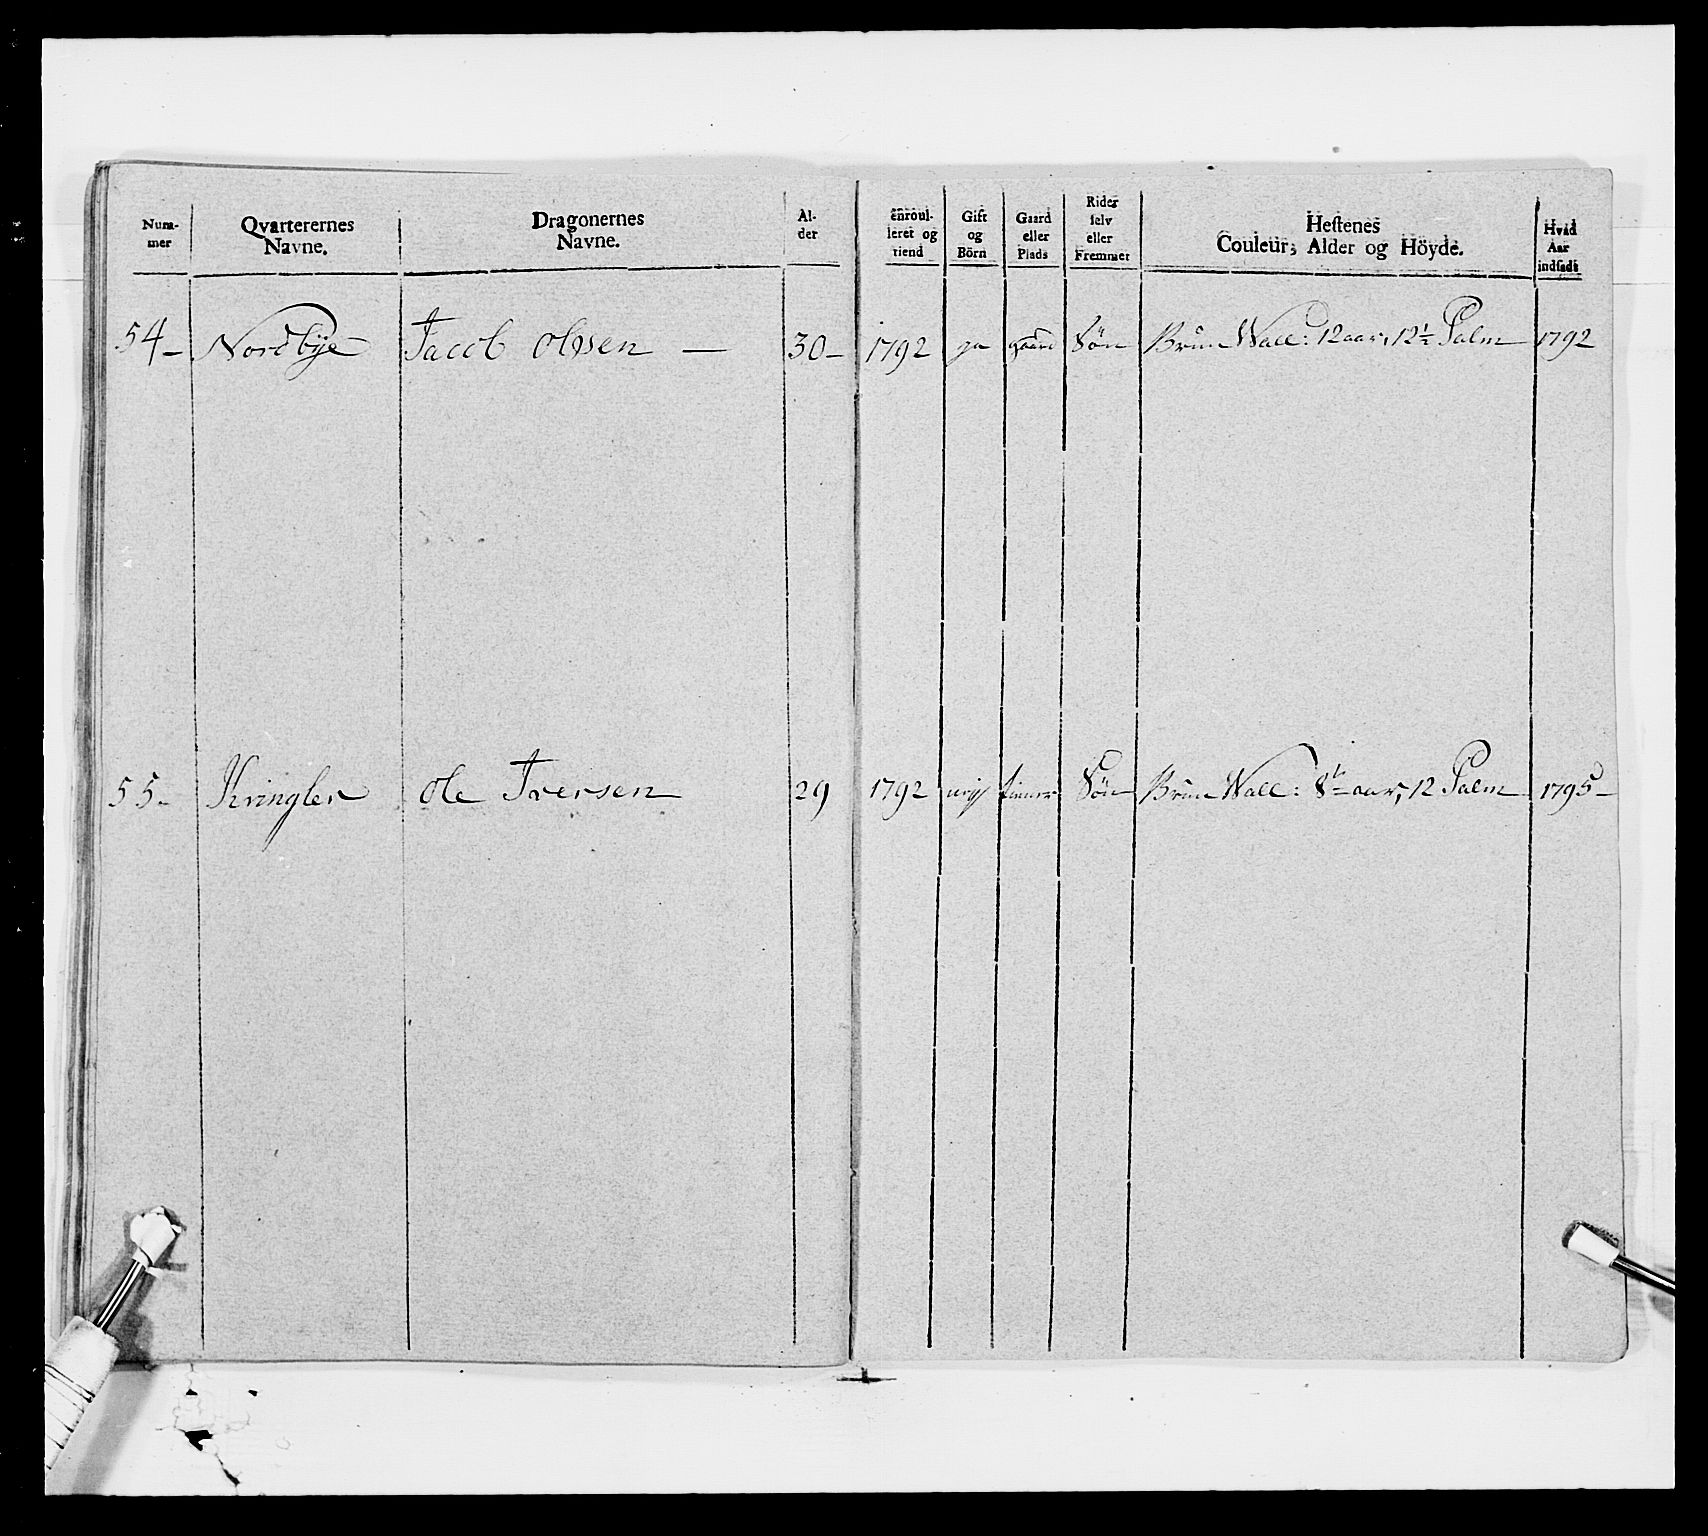 Num-
mer
Qvarterernes
Navne.
Dragonernes
Navne.
Al-
der
enroul-
leret og
tiend
Gift
og
Börn
Gaard
eller
Plads
Rider
selv
eller
Fremmet
Hestenes
Couleur; Alder og Höyde.
Hvad
Aar
indsadt
54 Nordbÿe Jacob Olssen — 30 1792 ja gaard Sön Brun Wall: 12 aar, 12½ Palm 1792
55 Kringler Ole Iversen 29 1792 Sön Brun Wall: 8 aar, 12 Palm 1795